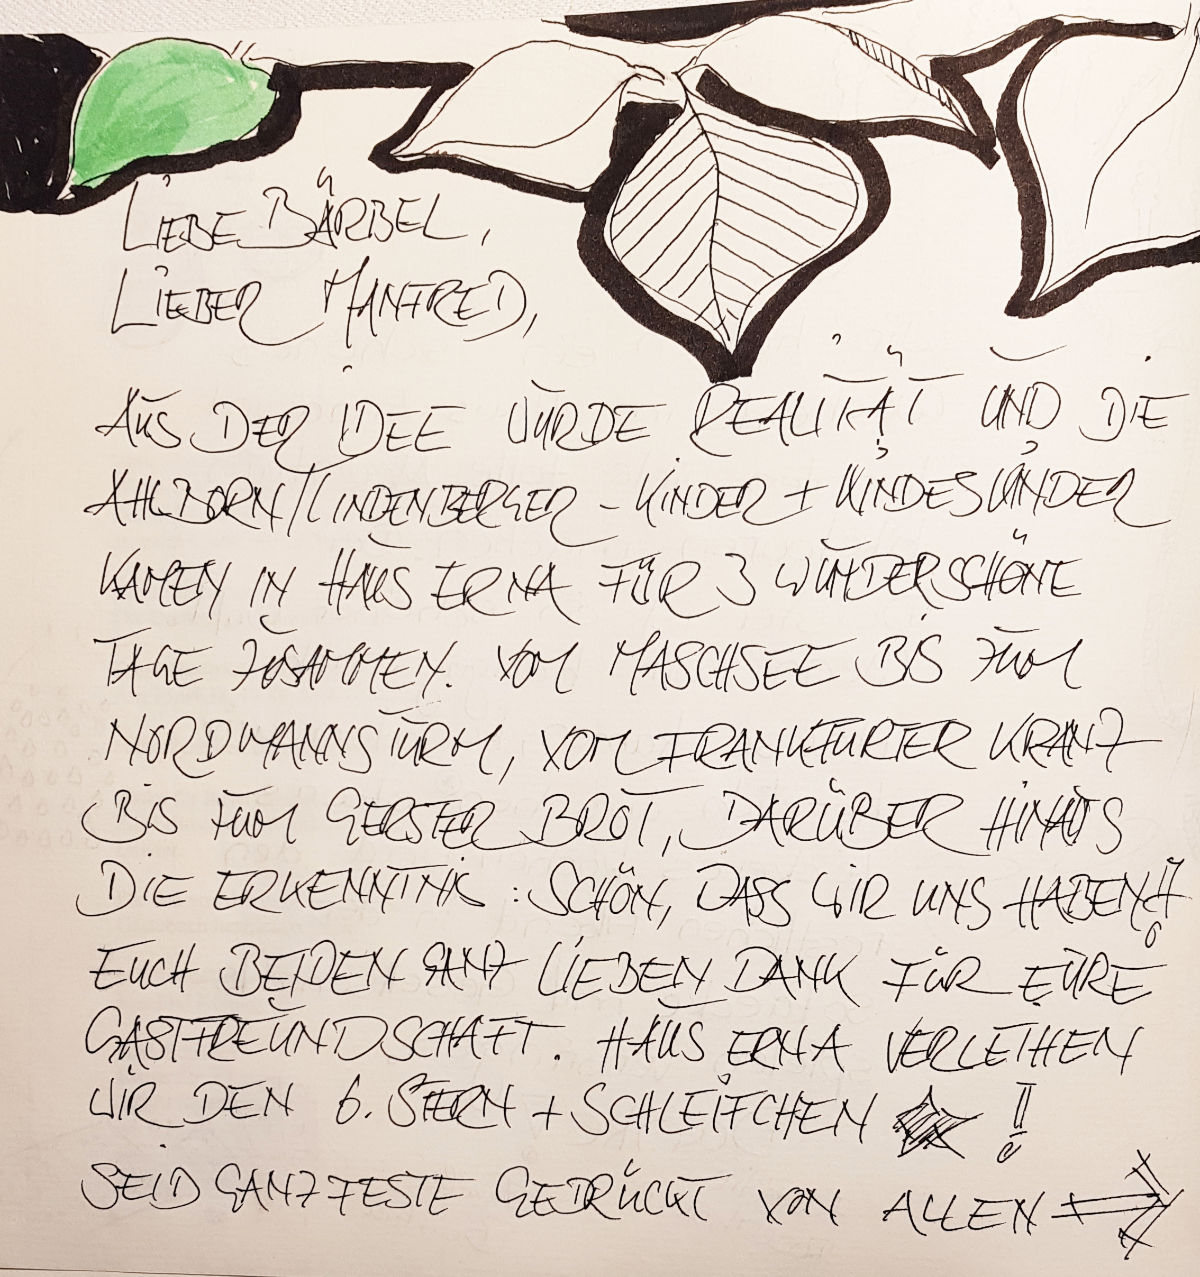 LIEBE BÄRBEL,
LIEBER MANFRED,
AUS DER IDEE WURDE REALITÄT UND DIE
AHLBORN/LINDENBERGER - KINDER + KINDESKINDER
KAMEN IN HAUS ERNA FÜR 3 WUNDERSCHÖNE
TAGE ZUSAMMEN. VOM MASCHSEE BIS ZUM
NORDMANNSTURM, VOM FRANKFURTER KRANZ
BIS ZUM GERSTER BROT, DARÜBER HINAUS
DIE ERKENNTNIS: SCHÖN, DASS WIR UNS HABEN!!
EUCH BEIDEN GANZ LIEBEN DANK FÜR EURE
GASTFREUNDSCHAFT. HAUS ERNA VERLEIHEN
WIR DEN 6. STERN + SCHLEIFCHEN !!
SEID GANZ FESTE GEDRÜCKT VON ALLEN